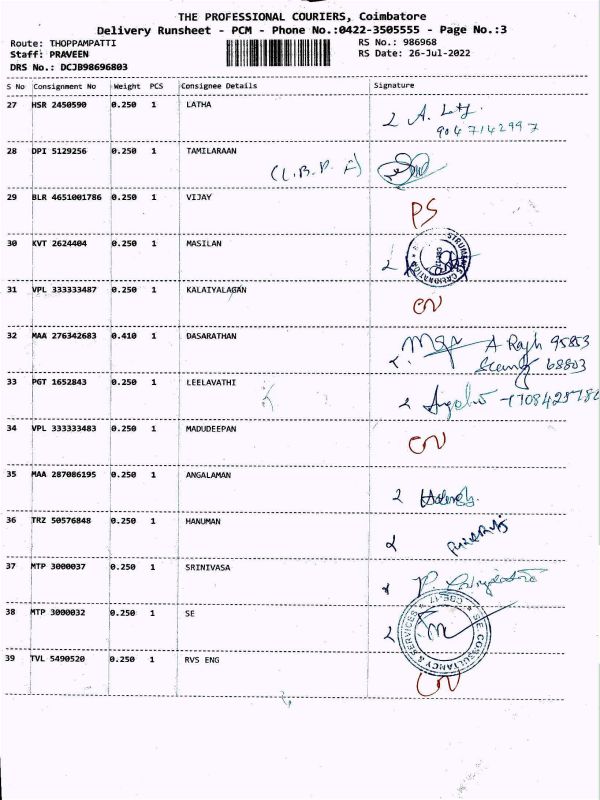 THE PROFESSIONAL COURIERS, Coimbatore
Delivery Runsheet - PCM - Phone No.:0422-3505555 - Page No.:3
Route: THOPPAMPATTI RS No.: 986968
Staff: PRAVEEN RS Date: 26-Jul-2022
DRS No.: DCJB98696803
S No Consignment No Weight PCS Consignee Details Signature
27 HSR 2450590 0.250 1 LATHA
9047142997
28 DPI 5129256 0.250 1 TAMILARAAN
29 BLR 4651001786 0.250 1 VIJAY PS
30 KVT 2624404 0.250 1 MASILAN
31 VPL 333333487 0.250 1 KALAIYALAGAN CN
32 MAA 276342683 0.410 1 DASARATHAN
33 PGT 1652843 0.250 1 LEELAVATHI
34 VPL 333333483 0.250 1 MADUDEEPAN CN
35 MAA 287086195 0.250 1 ANGALAMAN
36 TRZ 50576848 0.250 1 HANUMAN
37 MTP 3000037 0.250 1 SRINIVASA
38 MTP 3000032 0.250 1 SE
SE CONSULTANCY & SERVICES
39 TVL 5490520 0.250 1 RVS ENG CN